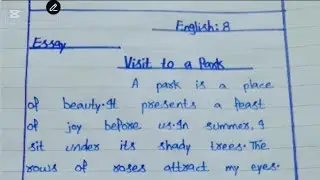 English: 8
Essay
Visit to a Park
A park is a place
of beauty. It presents a feast
of joy before us. In summer, I
sit under its shady trees. The
rows of roses attract my eyes.